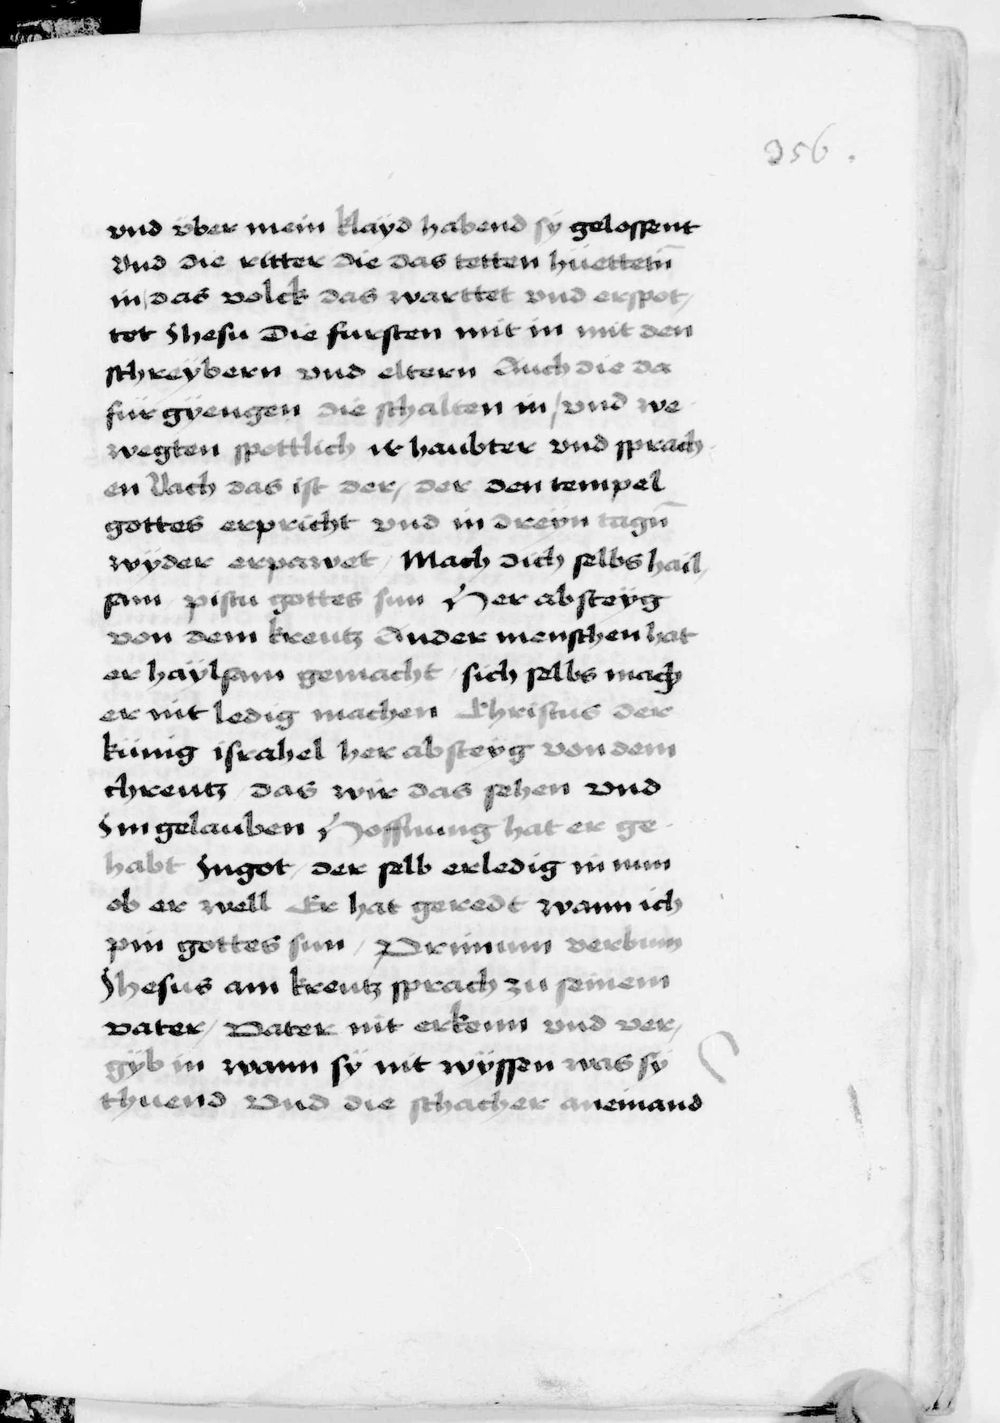 356.
vnd vber mein klayd habend sÿ gelossent
Vnd die ritter die das tetten hüettetn̄
in / das volck das warttet vnd erspot /
tet Ihesu Die fursten mit in mit den
schreÿbern vnd eltern Auch die da
für gÿengen die schalten in / vnd we
wegten spottlich ir haubter vnd sprach
en Vach das ist der / der den tempel
gottes erpricht vnd in dreÿn tagn̄
wÿder erpawet / Mach dich selbs hail /
sam / pistu gottes sun Her ab steÿg
von dem kreutz Ander menschen hat
er haÿlsam gemacht / sich selbs mach
er nit ledig machen Christus der
künig israhel her ab steÿg von dem
chreutz / das wir das sehen vnd
Im gelauben Hoffnung hat er ge
habt In got / der selb erledig in nun
ob er well Er hat geredt wann ich
pin gottes sun / Primum verbum
Ihesus am kreutz sprach zu seinem
vater / Vater nit erkenn vnd ver /
gÿb in wann sÿ nit wÿssen was sÿ
thuend Vnd die schacher aneinand